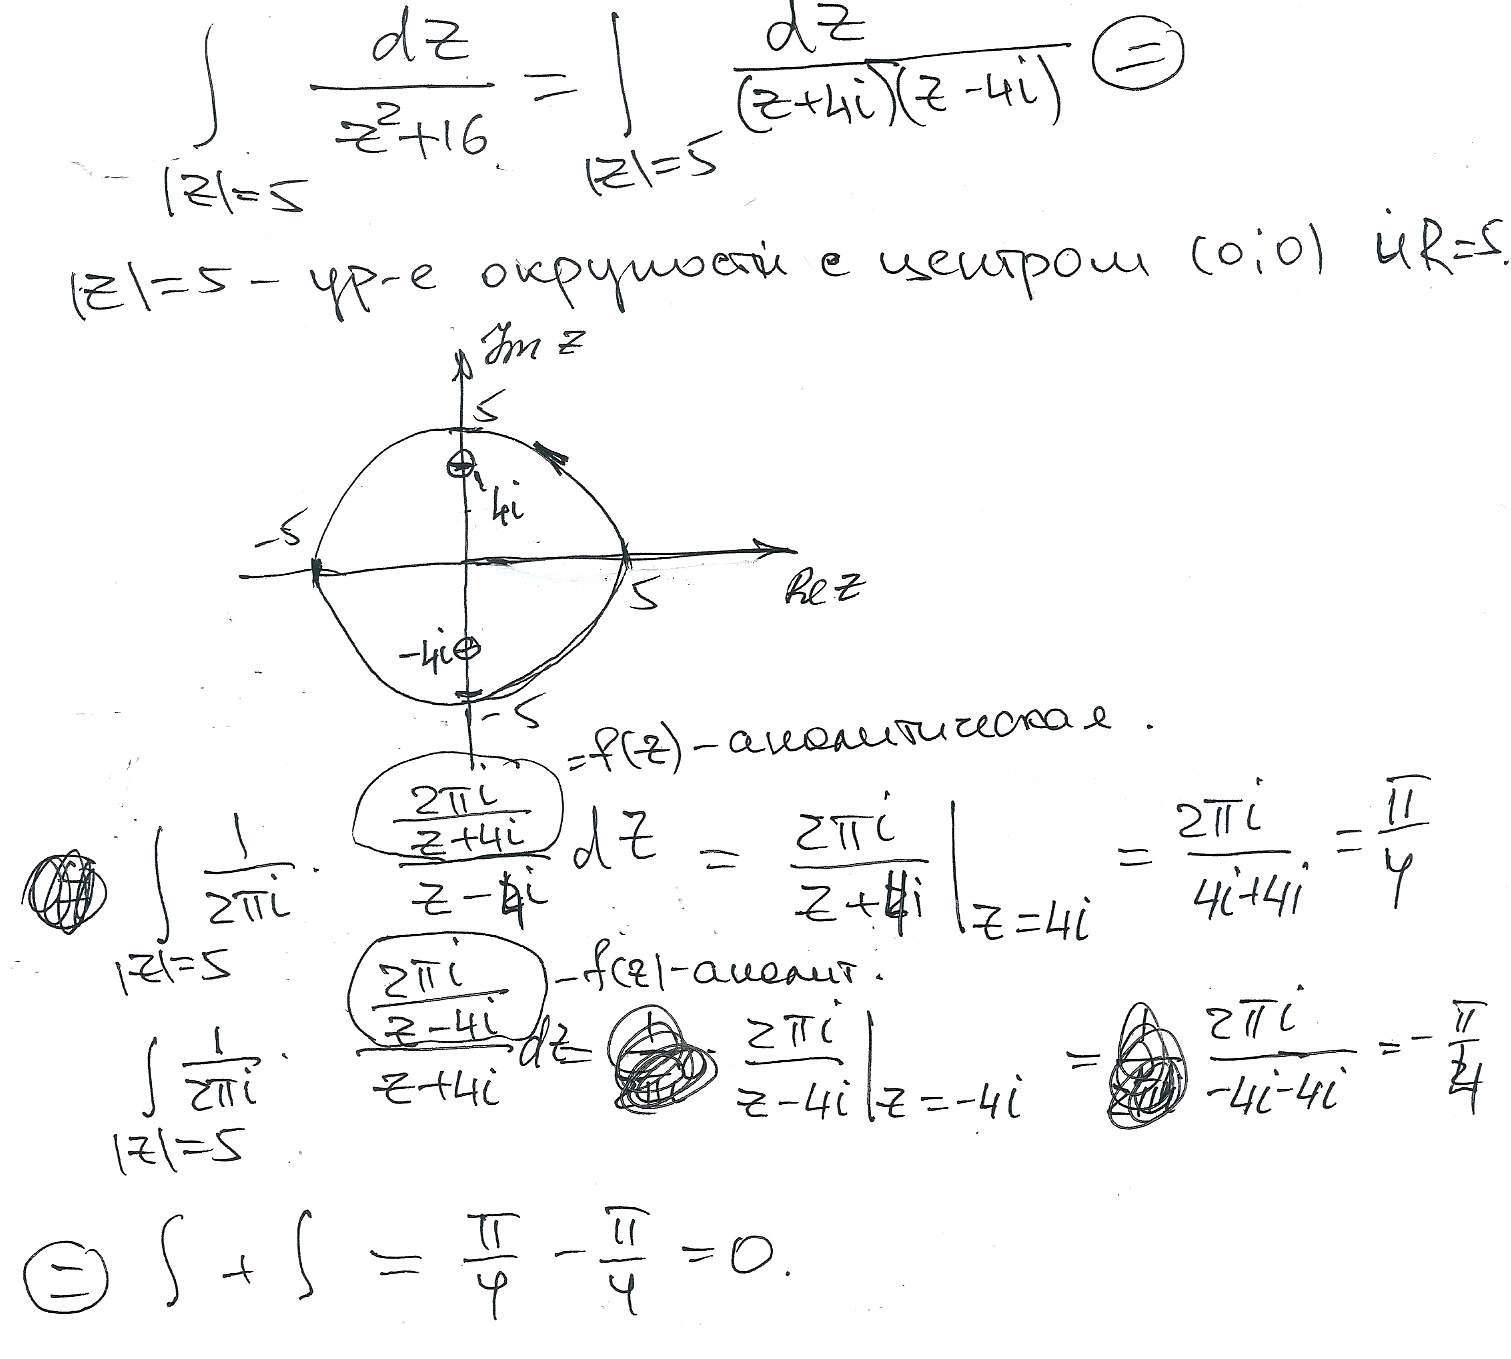 ∫ dz / (z²+16) = ∫ dz / ((z+4i)(z-4i)) (=)
|z|=5 |z|=5
|z|=5 - ур-е окружности с центром (0;0) и R=5.
Im z
5
4i
-5
5
Re z
-4i
-5
=f(z) - аналитическая.
∫ 1/(2πi) · (2πi/(z+4i))/(z-4i) dz = 2πi/(z+4i) | z=4i = 2πi/(4i+4i) = π/4
|z|=5
-f(z)-аналит.
∫ 1/(2πi) · (2πi/(z-4i))/(z+4i) dz = 2πi/(z-4i) | z=-4i = 2πi/(-4i-4i) = -π/4
|z|=5
(=) ∫ + ∫ = π/4 - π/4 = 0.